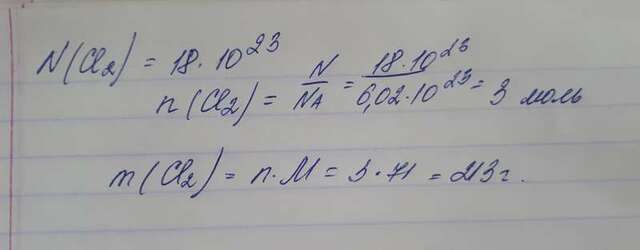 N(Cl₂) = 18·10²³
n(Cl₂) = N/NA = 18·10²³/6,02·10²³ = 3 моль
m(Cl₂) = n·M = 3·71 = 213г.